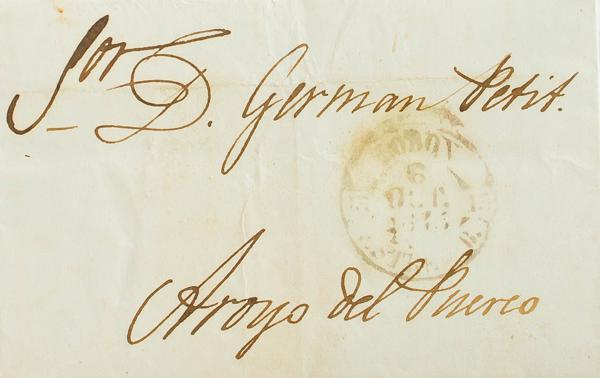 Sor D. German Petit.
6
OCT.
Aroyo del Puerco